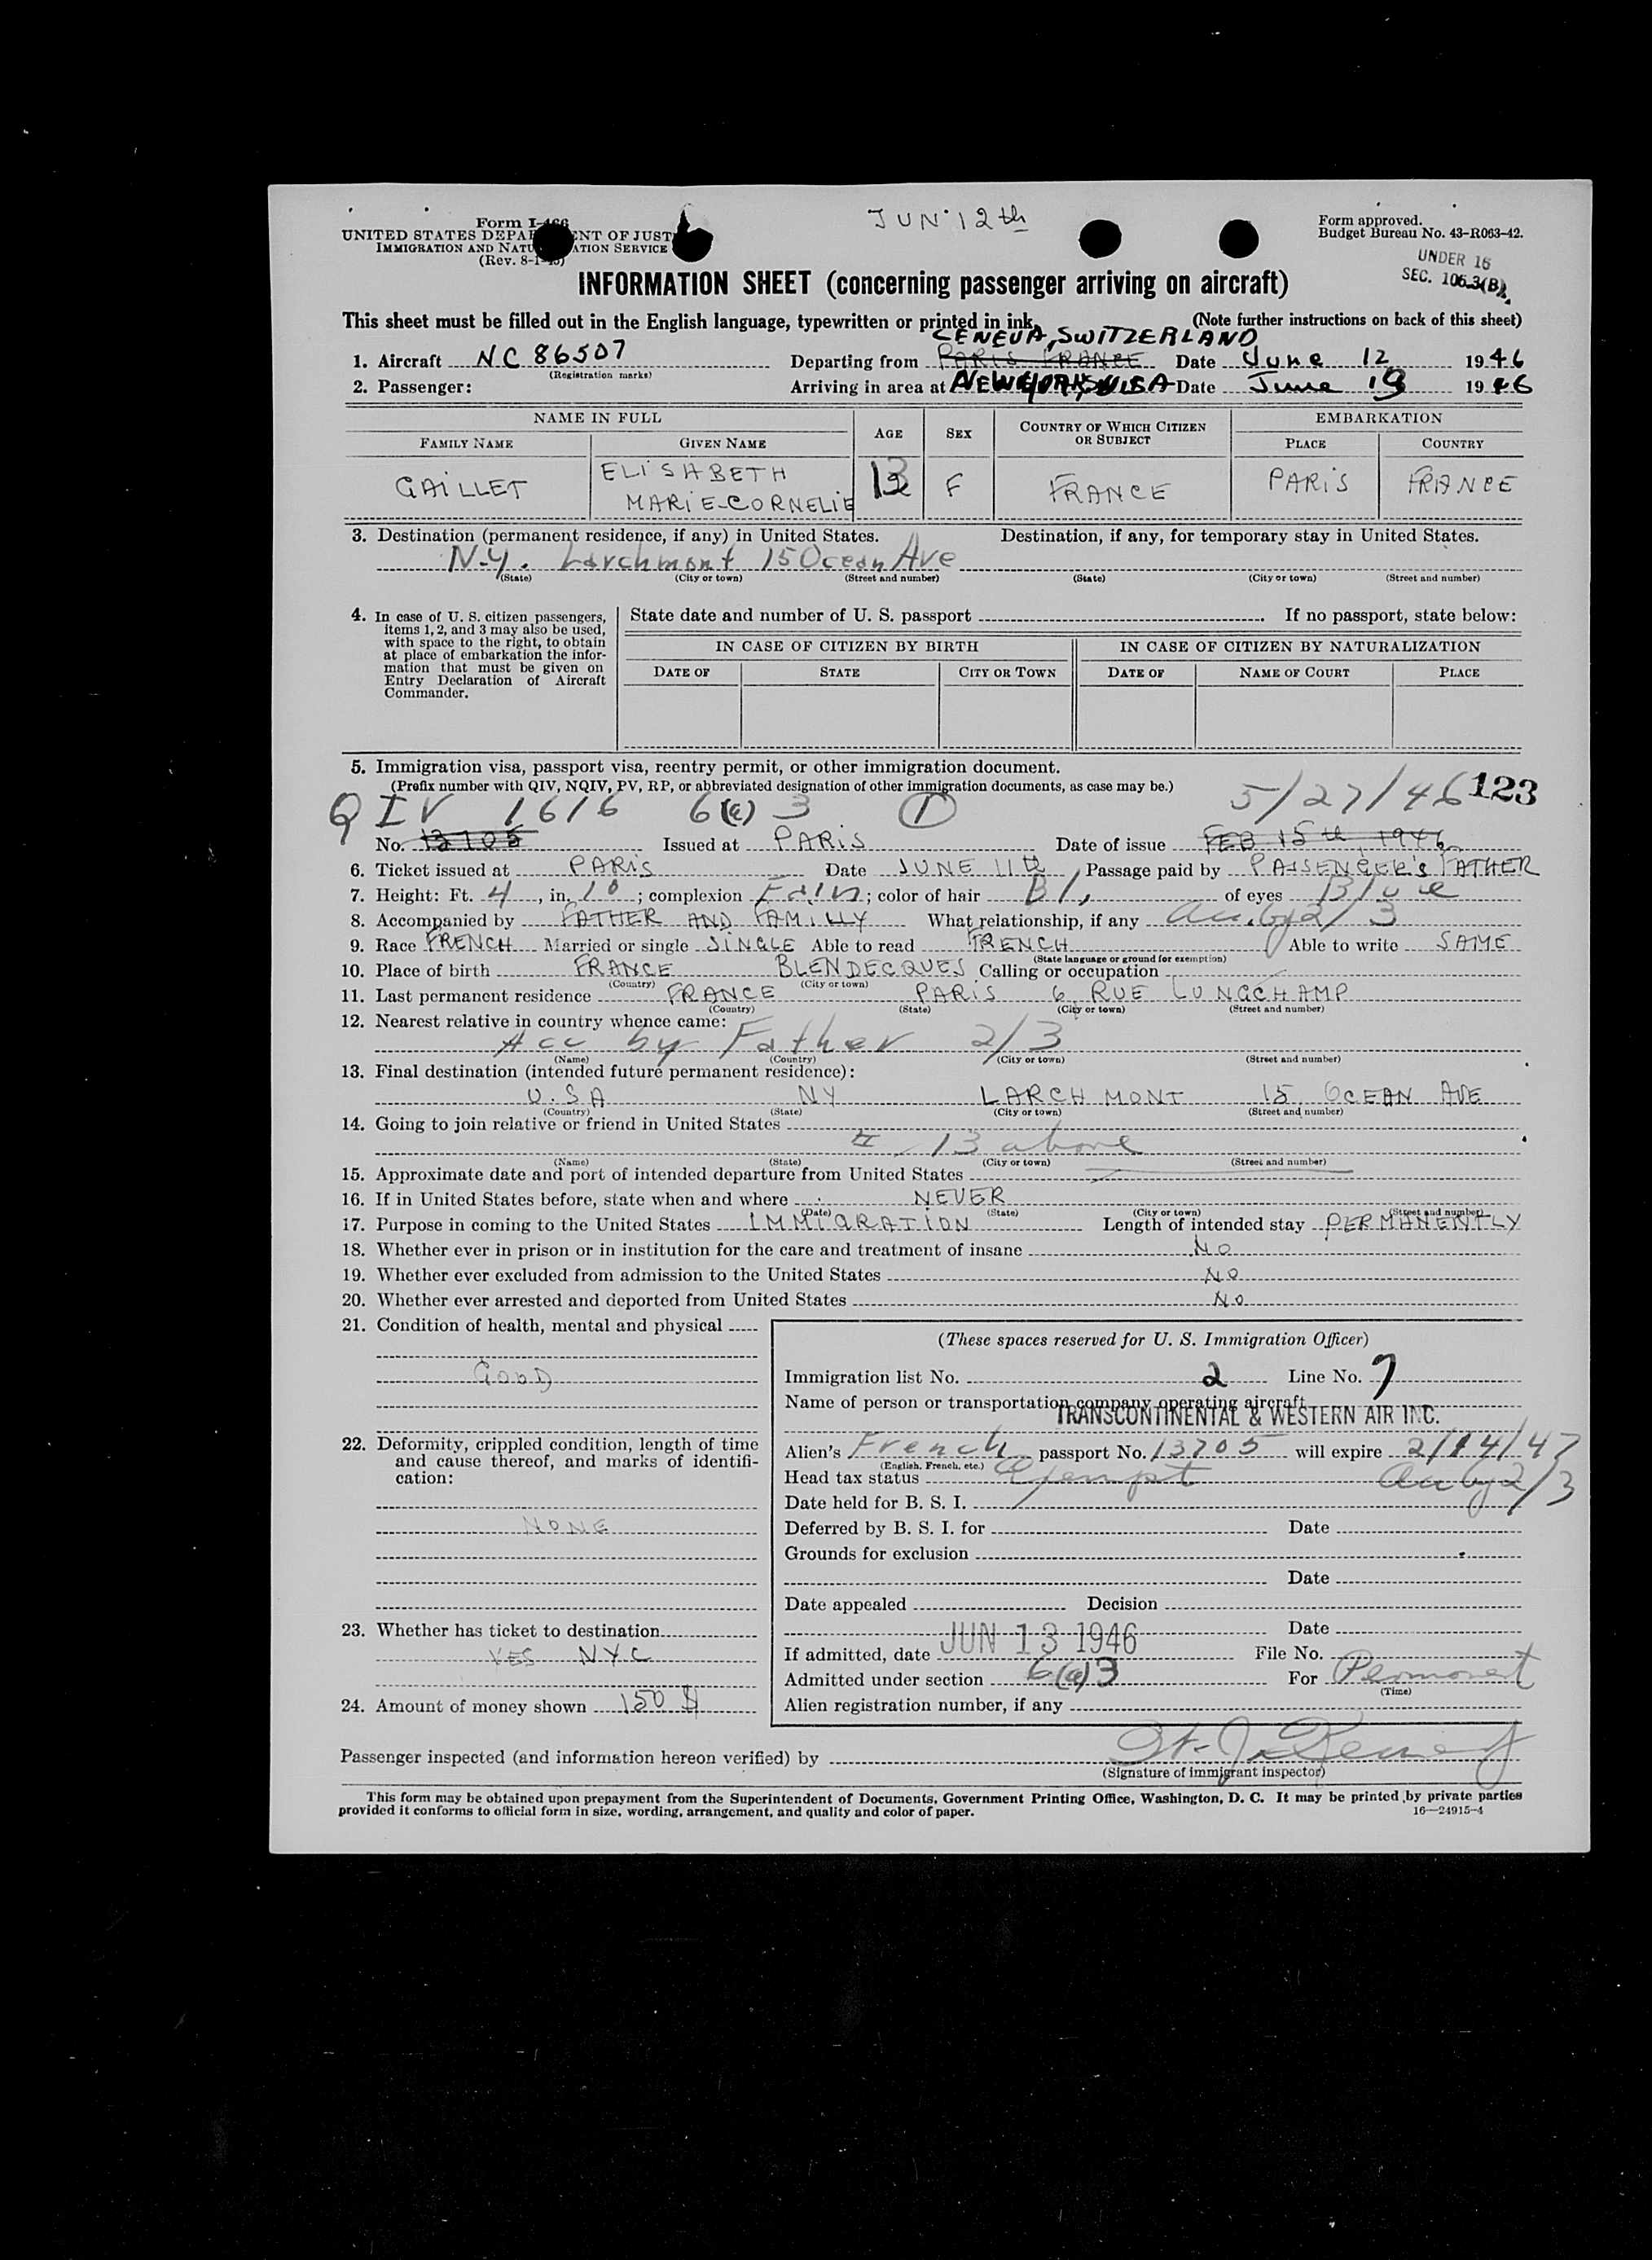 JUN 12th
Form I-466
UNITED STATES DEPARTMENT OF JUSTICE
IMMIGRATION AND NATURALIZATION SERVICE
(Rev. 8-1-45)
Form approved.
Budget Bureau No. 43-R063-42.
UNDER 16
SEC. 106.3(B)
INFORMATION SHEET (concerning passenger arriving on aircraft)
This sheet must be filled out in the English language, typewritten or printed in ink. (Note further instructions on back of this sheet)
GENEVA, SWITZERLAND
1. Aircraft NC 86507 Departing from PARIS FRANCE Date June 12 1946
(Registration marks)
2. Passenger: Arriving in area at NEW YORK, USA Date June 13 1946
NAME IN FULL AGE SEX COUNTRY OF WHICH CITIZEN OR SUBJECT EMBARKATION
FAMILY NAME GIVEN NAME PLACE COUNTRY
GAILLET ELISABETH MARIE-CORNELIE 13 F FRANCE PARIS FRANCE
3. Destination (permanent residence, if any) in United States. Destination, if any, for temporary stay in United States.
N.Y. Larchmont 15 Ocean Ave
(State) (City or town) (Street and number) (State) (City or town) (Street and number)
4. In case of U. S. citizen passengers, items 1, 2, and 3 may also be used, with space to the right, to obtain at place of embarkation the information that must be given on Entry Declaration of Aircraft Commander.
State date and number of U. S. passport . If no passport, state below:
IN CASE OF CITIZEN BY BIRTH IN CASE OF CITIZEN BY NATURALIZATION
DATE OF STATE CITY OR TOWN DATE OF NAME OF COURT PLACE
5. Immigration visa, passport visa, reentry permit, or other immigration document.
(Prefix number with QIV, NQIV, PV, RP, or abbreviated designation of other immigration documents, as case may be.)
QIV 1616 6(a) 3 1 5/27/46 123
No. 13705 Issued at PARIS Date of issue FEB 15th, 1946
6. Ticket issued at PARIS Date JUNE 11th Passage paid by PASSENGER'S FATHER
7. Height: Ft. 4, in. 10; complexion Fair; color of hair Bl, of eyes Blue
8. Accompanied by FATHER AND FAMILLY What relationship, if any by 2/3
9. Race FRENCH Married or single SINGLE Able to read FRENCH Able to write SAME
(State language or ground for exemption)
10. Place of birth FRANCE BLENDECQUES Calling or occupation
(Country) (City or town)
11. Last permanent residence FRANCE PARIS 6 RUE LONGCHAMP
(Country) (State) (City or town) (Street and number)
12. Nearest relative in country whence came:
Acc by Father 2/3
(Name) (Country) (City or town) (Street and number)
13. Final destination (intended future permanent residence):
U.S.A NY LARCHMONT 15 OCEAN AVE
(Country) (State) (City or town) (Street and number)
14. Going to join relative or friend in United States
13 above
(Name) (State) (City or town) (Street and number)
15. Approximate date and port of intended departure from United States
16. If in United States before, state when and where NEVER
(Date) (State) (City or town) (Street and number)
17. Purpose in coming to the United States IMMIGRATION Length of intended stay PERMANENTLY
18. Whether ever in prison or in institution for the care and treatment of insane NO
19. Whether ever excluded from admission to the United States NO
20. Whether ever arrested and deported from United States NO
21. Condition of health, mental and physical
GOOD
22. Deformity, crippled condition, length of time and cause thereof, and marks of identification:
NONE
23. Whether has ticket to destination
YES NYC
24. Amount of money shown 150 $
(These spaces reserved for U. S. Immigration Officer)
Immigration list No. 2 Line No. 7
Name of person or transportation company operating aircraft
TRANSCONTINENTAL & WESTERN AIR INC.
Alien's French passport No. 13705 will expire 2/14/47
(English, French, etc.)
Head tax status Exempt by 2/3
Date held for B. S. I.
Deferred by B. S. I. for Date
Grounds for exclusion
Date
Date appealed Decision
Date
If admitted, date JUN 13 1946 File No.
Admitted under section 6(a)3 For Permanent
(Time)
Alien registration number, if any
Passenger inspected (and information hereon verified) by
(Signature of immigrant inspector)
This form may be obtained upon prepayment from the Superintendent of Documents, Government Printing Office, Washington, D. C. It may be printed by private parties
provided it conforms to official form in size, wording, arrangement, and quality and color of paper. 16—24915-4